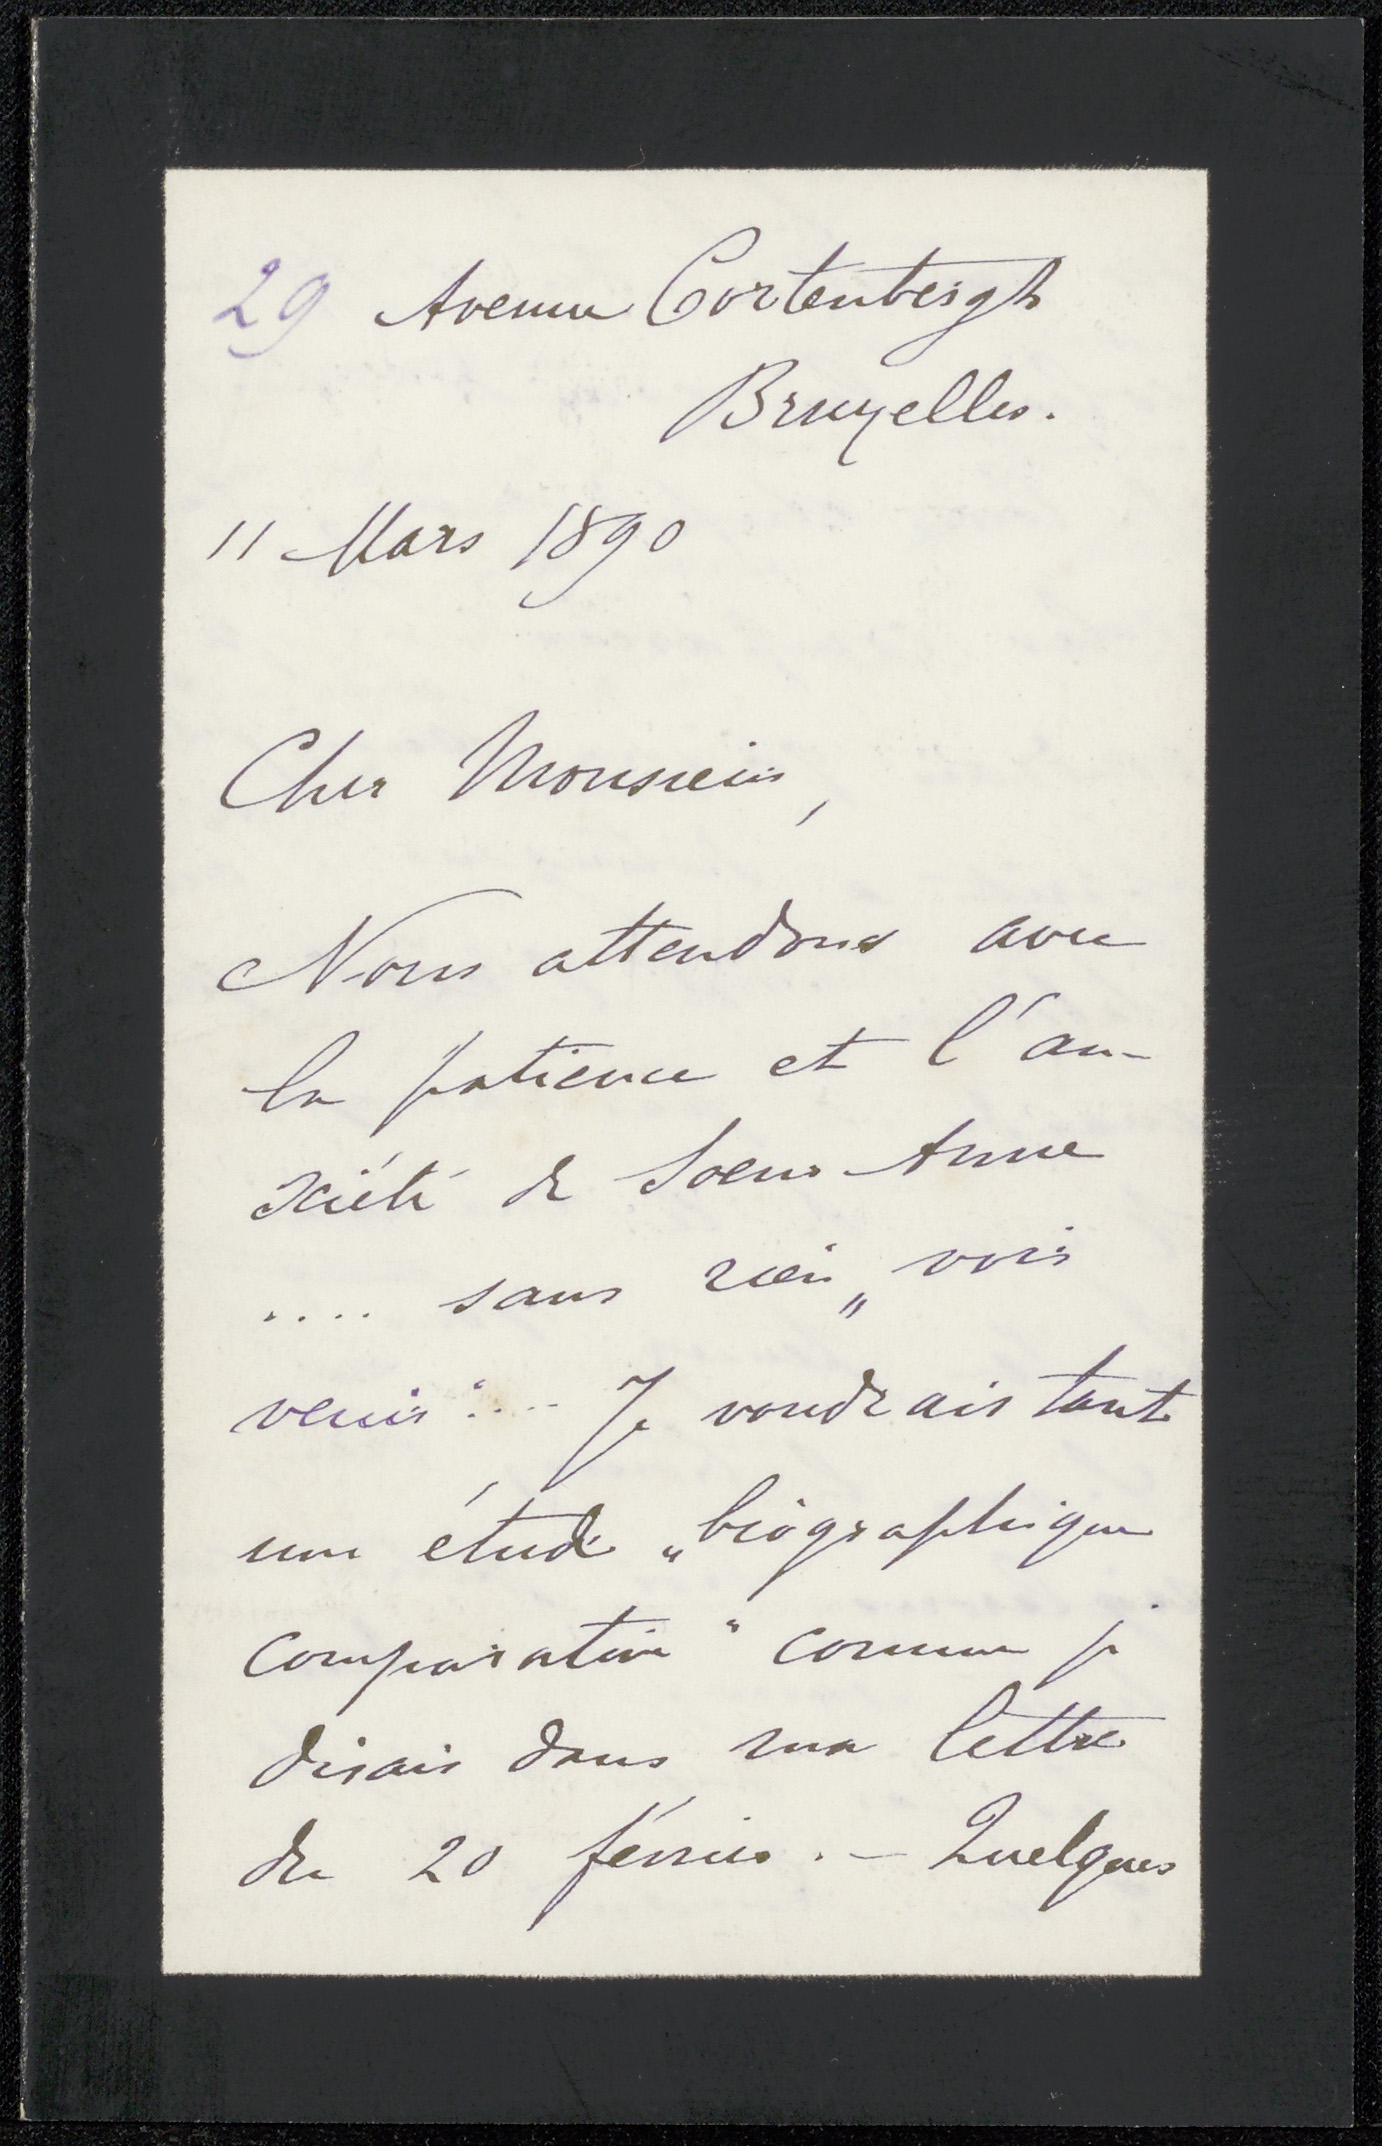 29 Avenue Cortenbergh
Bruxelles.
11 Mars 1890
Cher Monsieur,
Nous attendons avec
la patience et l'an-
xiété de Soeur Anne
.... sans rien „voir
venir“.... Je voudrais tant
une étude „biographique
comparative“ comme je
disais dans ma lettre
du 20 février. – Quelques